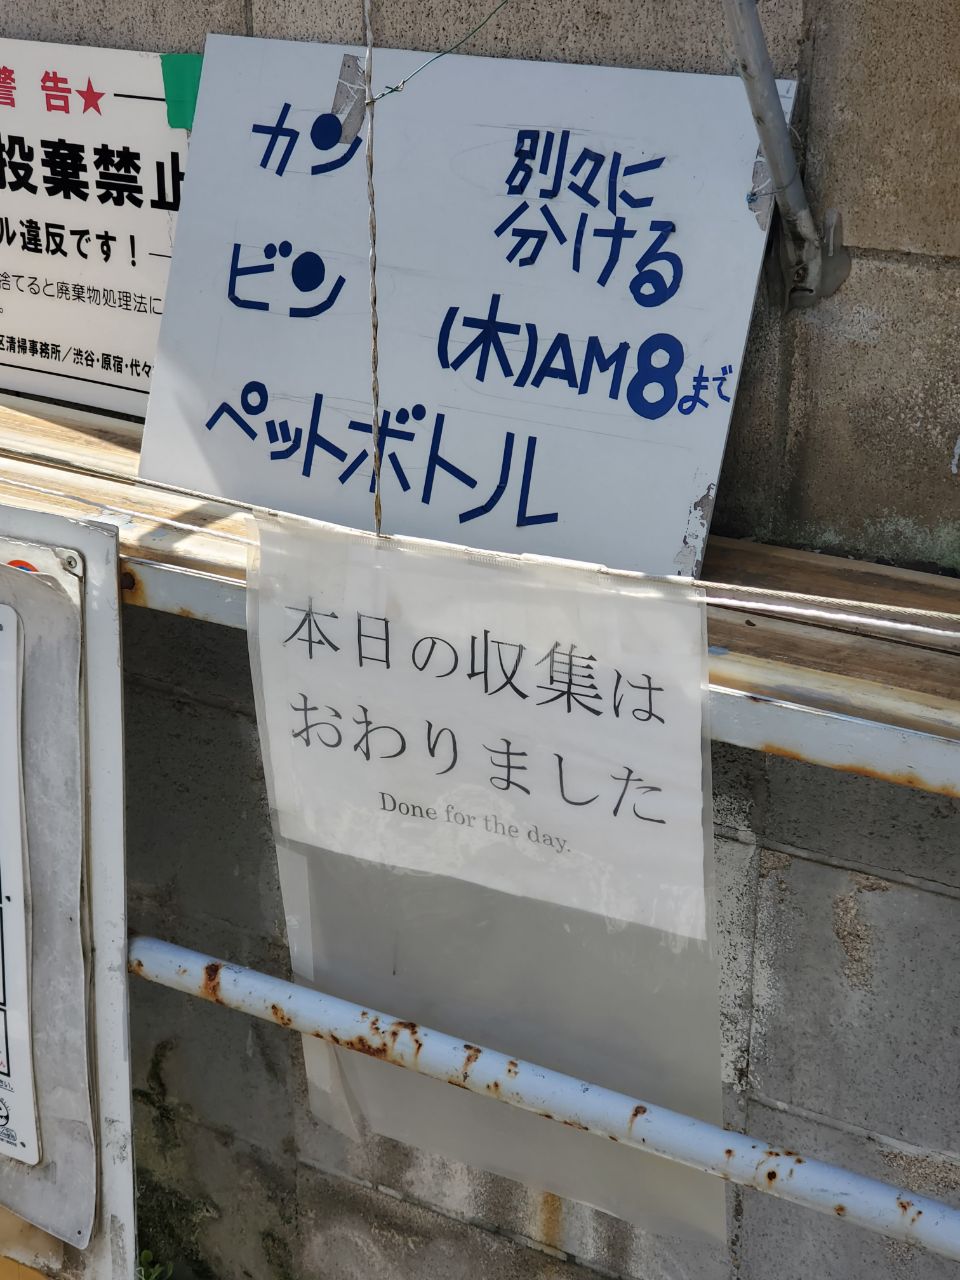 警告★
投棄禁止
ル違反です！
捨てると廃棄物処理法に
。
区清掃事務所／渋谷・原宿・代々
カン
ビン
ペットボトル
別々に
分ける
(木)AM8まで
本日の収集は
おわりました
Done for the day.